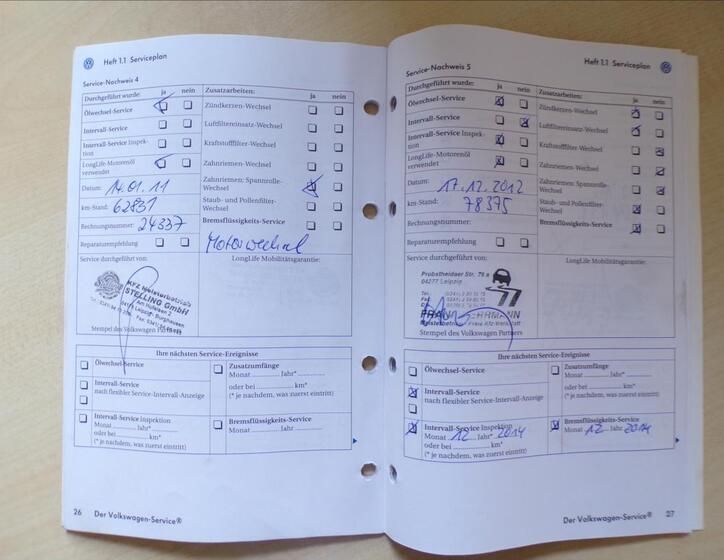 Heft 1.1 Serviceplan
Service-Nachweis 4
Durchgeführt wurde: ja nein
Ölwechsel-Service
Intervall-Service
Intervall-Service Inspek-
tion
LongLife-Motorenöl
verwendet
Datum: 14.01.11
km-Stand: 62831
Rechnungsnummer: 24337
Reparaturempfehlung
Zusatzarbeiten: ja nein
Zündkerzen-Wechsel
Luftfiltereinsatz-Wechsel
Kraftstofffilter-Wechsel
Zahnriemen-Wechsel
Zahnriemen: Spannrolle-
Wechsel
Staub- und Pollenfilter-
Wechsel
Bremsflüssigkeits-Service
Motorwechsel
Service durchgeführt von:
KFZ Meisterbetrieb
STELLING GmbH
Am Hufeisen 2
04178 Leipzig - Burghausen
Stempel des Volkswagen Partners
LongLife Mobilitätsgarantie:
Ihre nächsten Service-Ereignisse
Ölwechsel-Service
Intervall-Service
nach flexibler Service-Intervall-Anzeige
Intervall-Service Inspektion
Monat Jahr*
oder bei km*
(* je nachdem, was zuerst eintritt)
Zusatzumfänge
Monat Jahr*
oder bei km*
(* je nachdem, was zuerst eintritt)
Bremsflüssigkeits-Service
Monat Jahr
26 Der Volkswagen-Service®
Heft 1.1 Serviceplan
Service-Nachweis 5
Durchgeführt wurde: ja nein
Ölwechsel-Service
Intervall-Service
Intervall-Service Inspek-
tion
LongLife-Motorenöl
verwendet
Datum: 17.12.2012
km-Stand: 78375
Rechnungsnummer:
Reparaturempfehlung
Zusatzarbeiten: ja nein
Zündkerzen-Wechsel
Luftfiltereinsatz-Wechsel
Kraftstofffilter-Wechsel
Zahnriemen-Wechsel
Zahnriemen: Spannrolle-
Wechsel
Staub- und Pollenfilter-
Wechsel
Bremsflüssigkeits-Service
Service durchgeführt von:
Probstheidaer Str. 79 a
04277 Leipzig
Meisterbetrieb Freie Kfz-Werkstatt
Stempel des Volkswagen Partners
LongLife Mobilitätsgarantie:
Ihre nächsten Service-Ereignisse
Ölwechsel-Service
Intervall-Service
nach flexibler Service-Intervall-Anzeige
Intervall-Service Inspektion
Monat 12 Jahr* 2014
oder bei km*
(* je nachdem, was zuerst eintritt)
Zusatzumfänge
Monat Jahr*
oder bei km*
(* je nachdem, was zuerst eintritt)
Bremsflüssigkeits-Service
Monat 12 Jahr 2014
Der Volkswagen-Service® 27